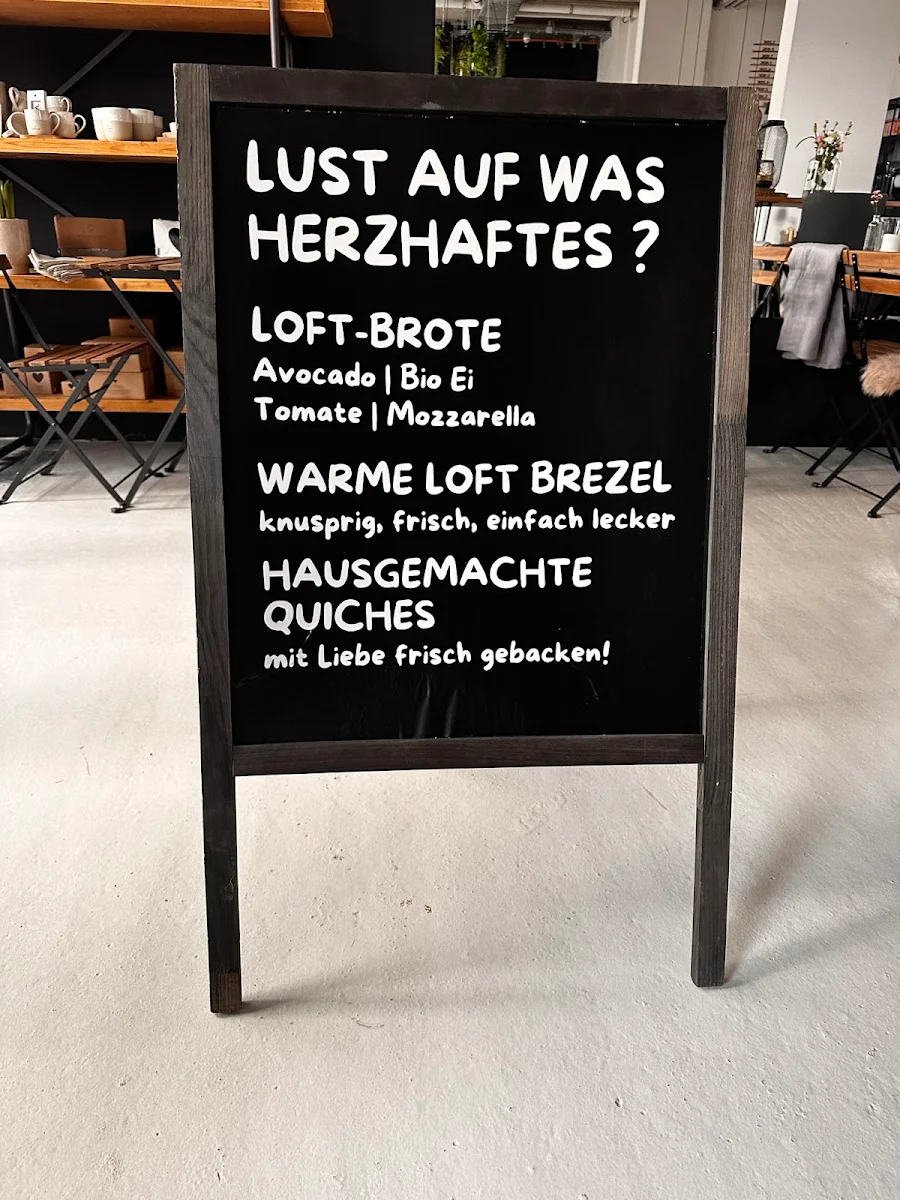 LUST AUF WAS
HERZHAFTES ?
LOFT-BROTE
Avocado | Bio Ei
Tomate | Mozzarella
WARME LOFT BREZEL
knusprig, frisch, einfach lecker
HAUSGEMACHTE
QUICHES
mit Liebe frisch gebacken!